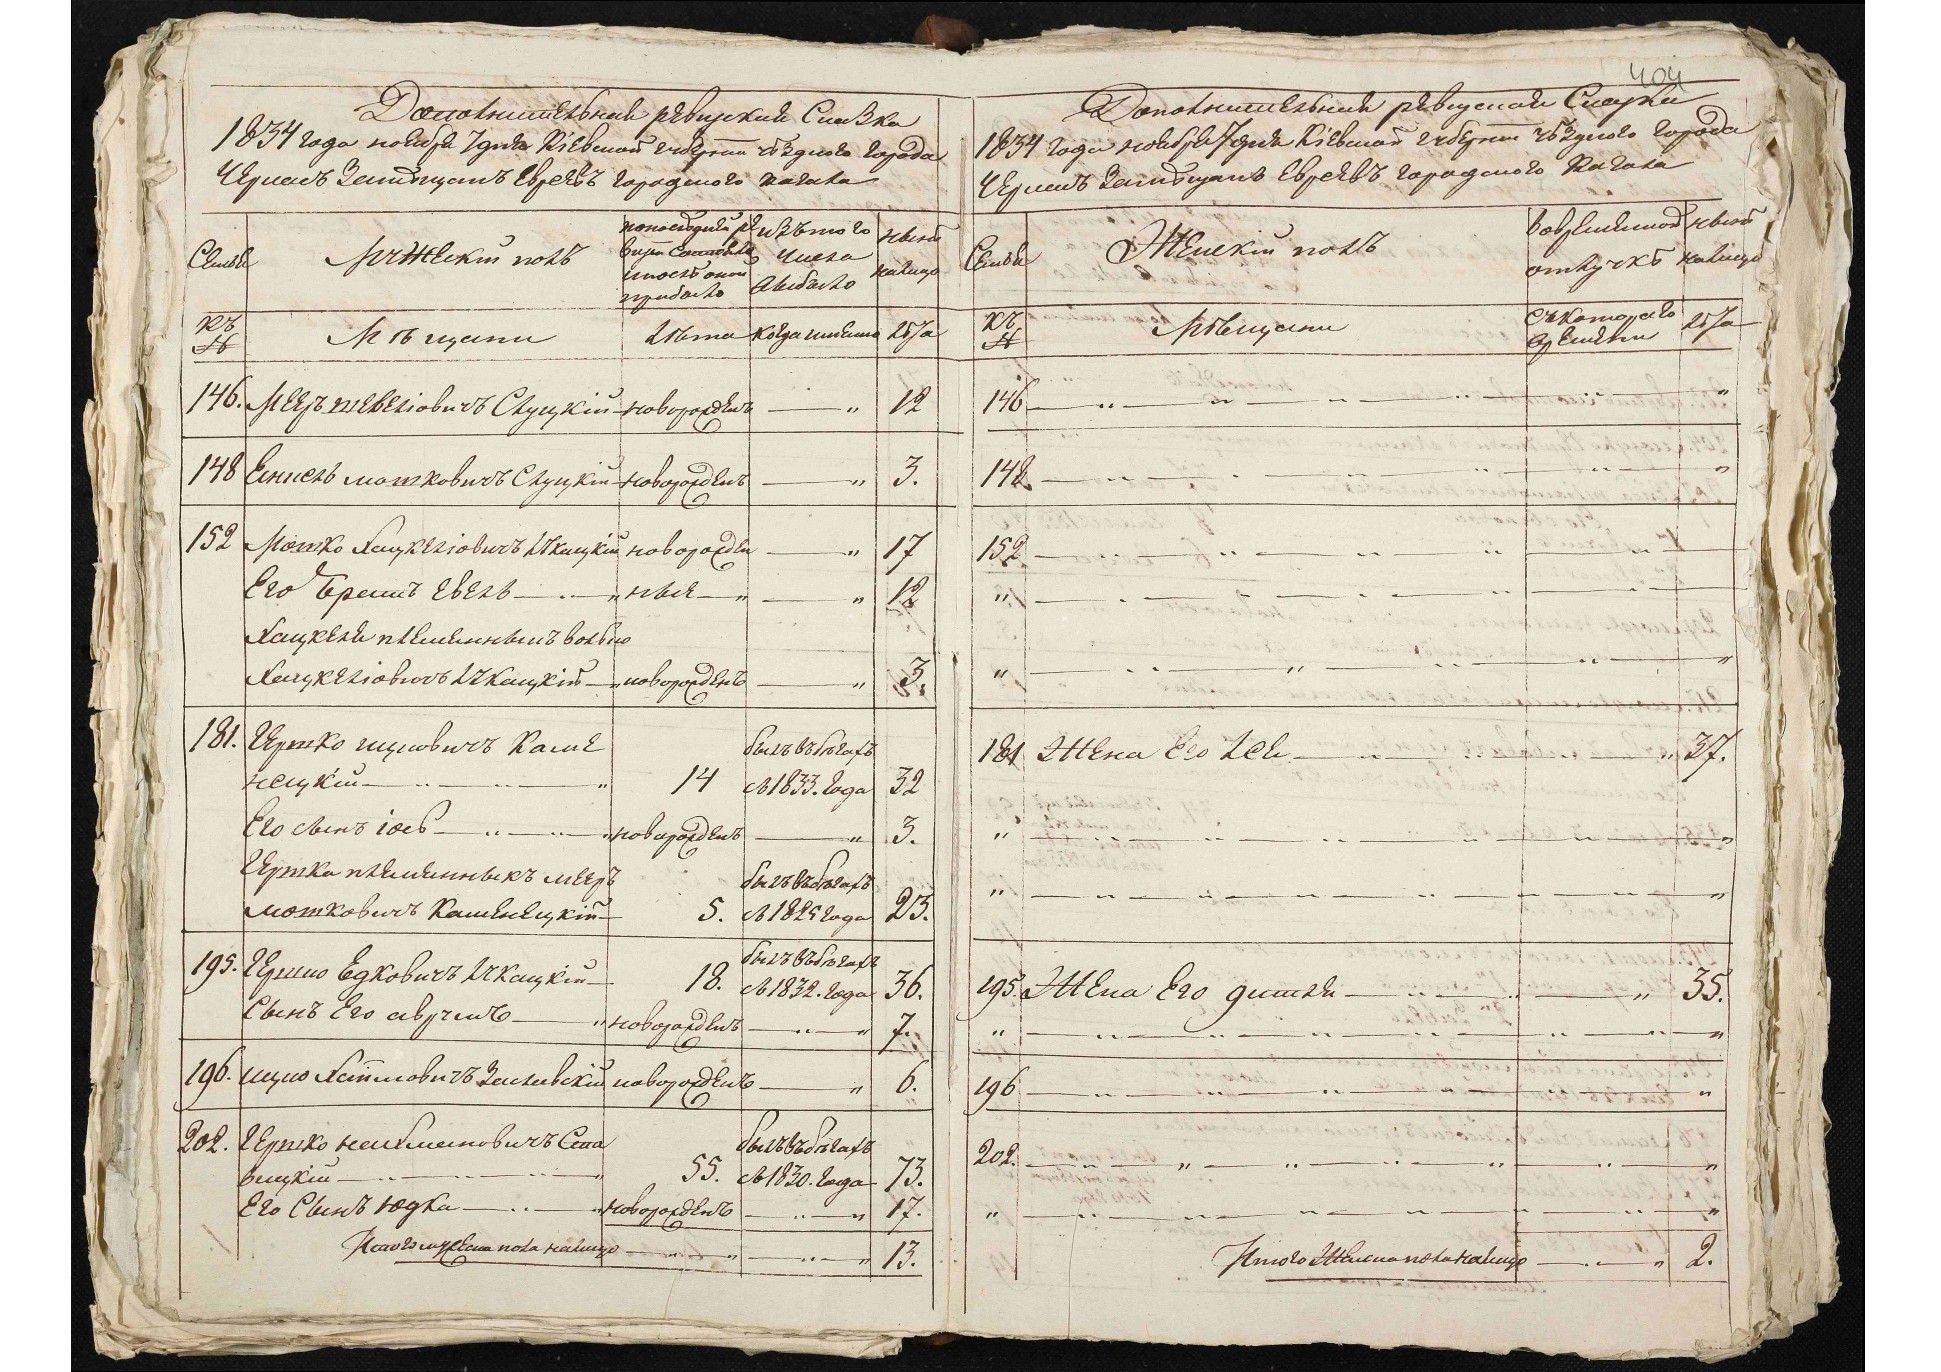 404
Дополнительная ревизская Сказка
1834 года ноября 7 дня Кіевской губерніи уѣзднаго города
Черкасъ Замѣщанъ Евреевъ городскаго кагала
Семьи
Мужескій полъ
по последней ре
визіи состояло
и после оной
прибыло
изъ того
числа
выбыло
ныне
налицо
къ
№
Мѣщане
Лѣта
когда именно
лѣта
146. Меер Шевеліовичъ Слуцкій новорожденъ — „ 12
148 Еникель Мошковичъ Слуцкій новорожденъ — „ 3.
152 Мошко Хацкеліовичъ Лѣкацкій новорожден — „ 17
Его братъ Евель — „ — „ 12
Хацкеля племянникъ Волько
Хацкеліовичъ Лѣкацкій — новорожденъ — „ 3.
181. Гершко Шуловичъ Каме
нецкій — „ 14 былъ въ бѣгахъ съ 1833. года 32
Его сынъ Іось — „ новорожденъ — „ 3.
Гершка племянникъ Мееръ
Мошковичъ Каменецкій — 5. былъ въ бѣгахъ съ 1825 года 23.
195. Гершко Едковичъ Лѣкацкій — 18. былъ въ бѣгахъ съ 1832. года 36.
Сынъ Его Аврумъ — „ новорожденъ — „ 7.
196. новорожденъ — „ 6.
202. Гершко Нехемьновичъ Сла
вицкій — „ 55. былъ въ бѣгахъ съ 1830. года 73.
Его Сынъ Юдка — „ новорожденъ — „ 17.
Итого мужеска пола налицо — „ — „ 13.
Дополнительная ревизская Сказка
1834 года ноября 7 дня Кіевской губерніи уѣзднаго города
Черкасъ Замѣщанъ Евреевъ городскаго Кагала
Семьи
Женскій полъ
во временной
отлучкѣ
ныне
налицо
къ
№
Мѣщане
съ котораго
времени
лѣта
146 — „ — „
148 — „ — „
152 — „ — „
„ — „ — „
„ — „ — „
181 Жена Его Лея — „ 37.
„ — „ — „
„ — „ — „
195. Жена Его — „ 35.
„ — „ — „
196 — „ — „
202. — „ — „
„ — „ — „
Итого Женска пола налицо — „ 2.